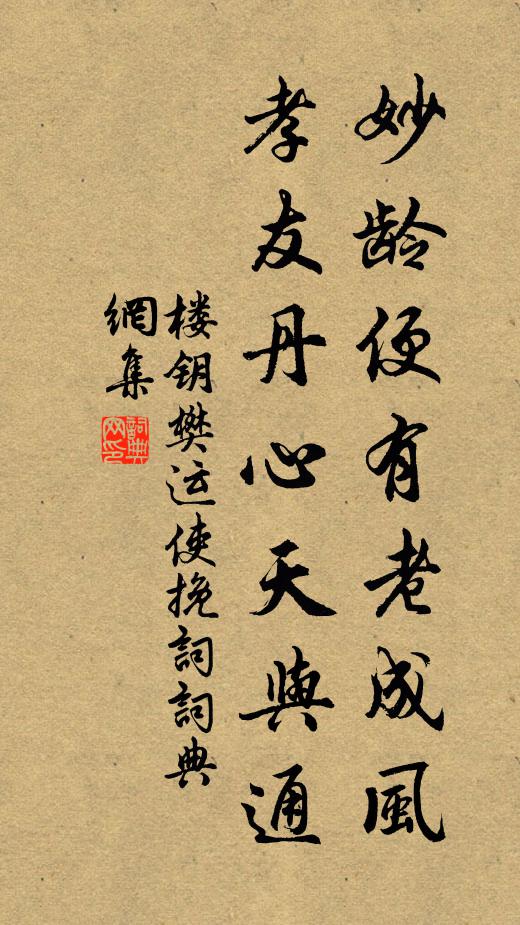 妙龄便有老成風
孝友丹心天與通
楼钥樊运使挽詞詞典
網集
詞典网印